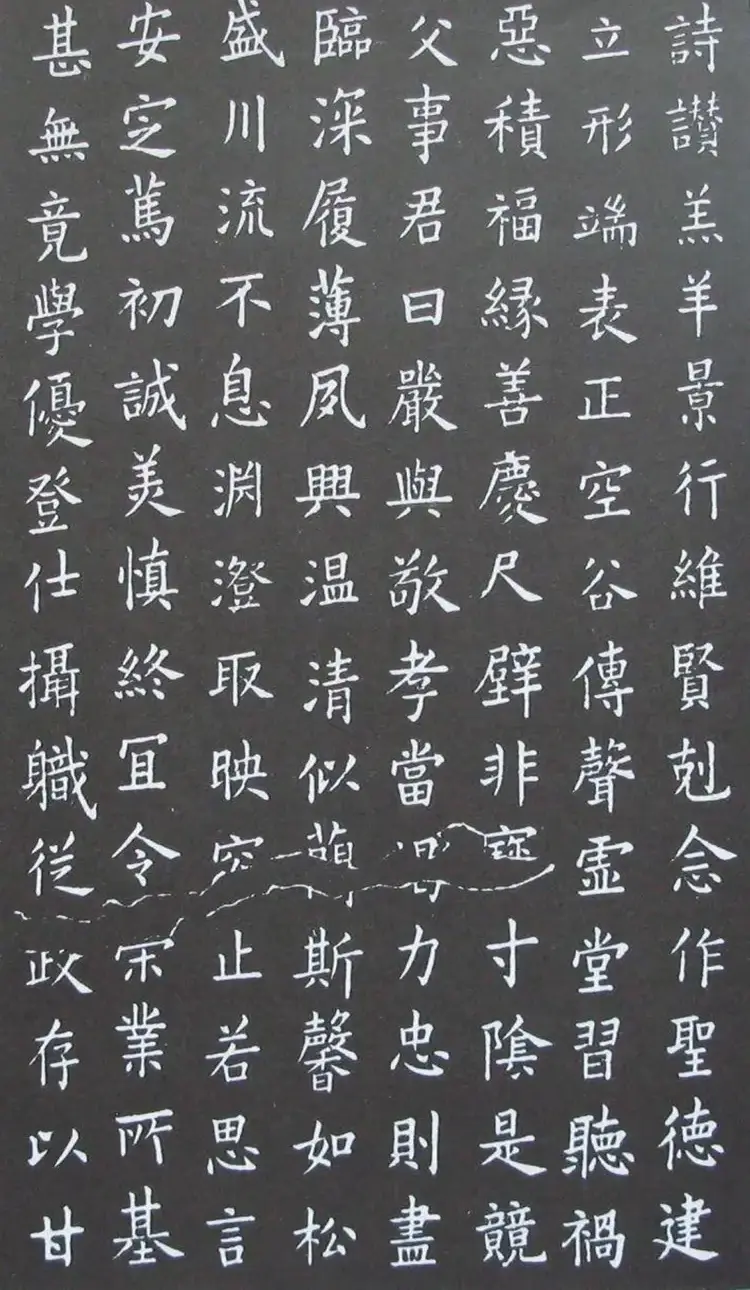 詩讃羔羊景行維賢剋念作聖徳建
立形端表正空谷傳聲虚堂習聽禍
惡積福縁善慶尺璧非寶寸陰是競
父事君曰嚴與敬孝當力忠則盡
臨深履薄夙興温清似蘭斯馨如松
盛川流不息渊澄取映容止若思言
安定篤初誠美慎終冝令業所基
甚無竟學優登仕攝職從政存以甘